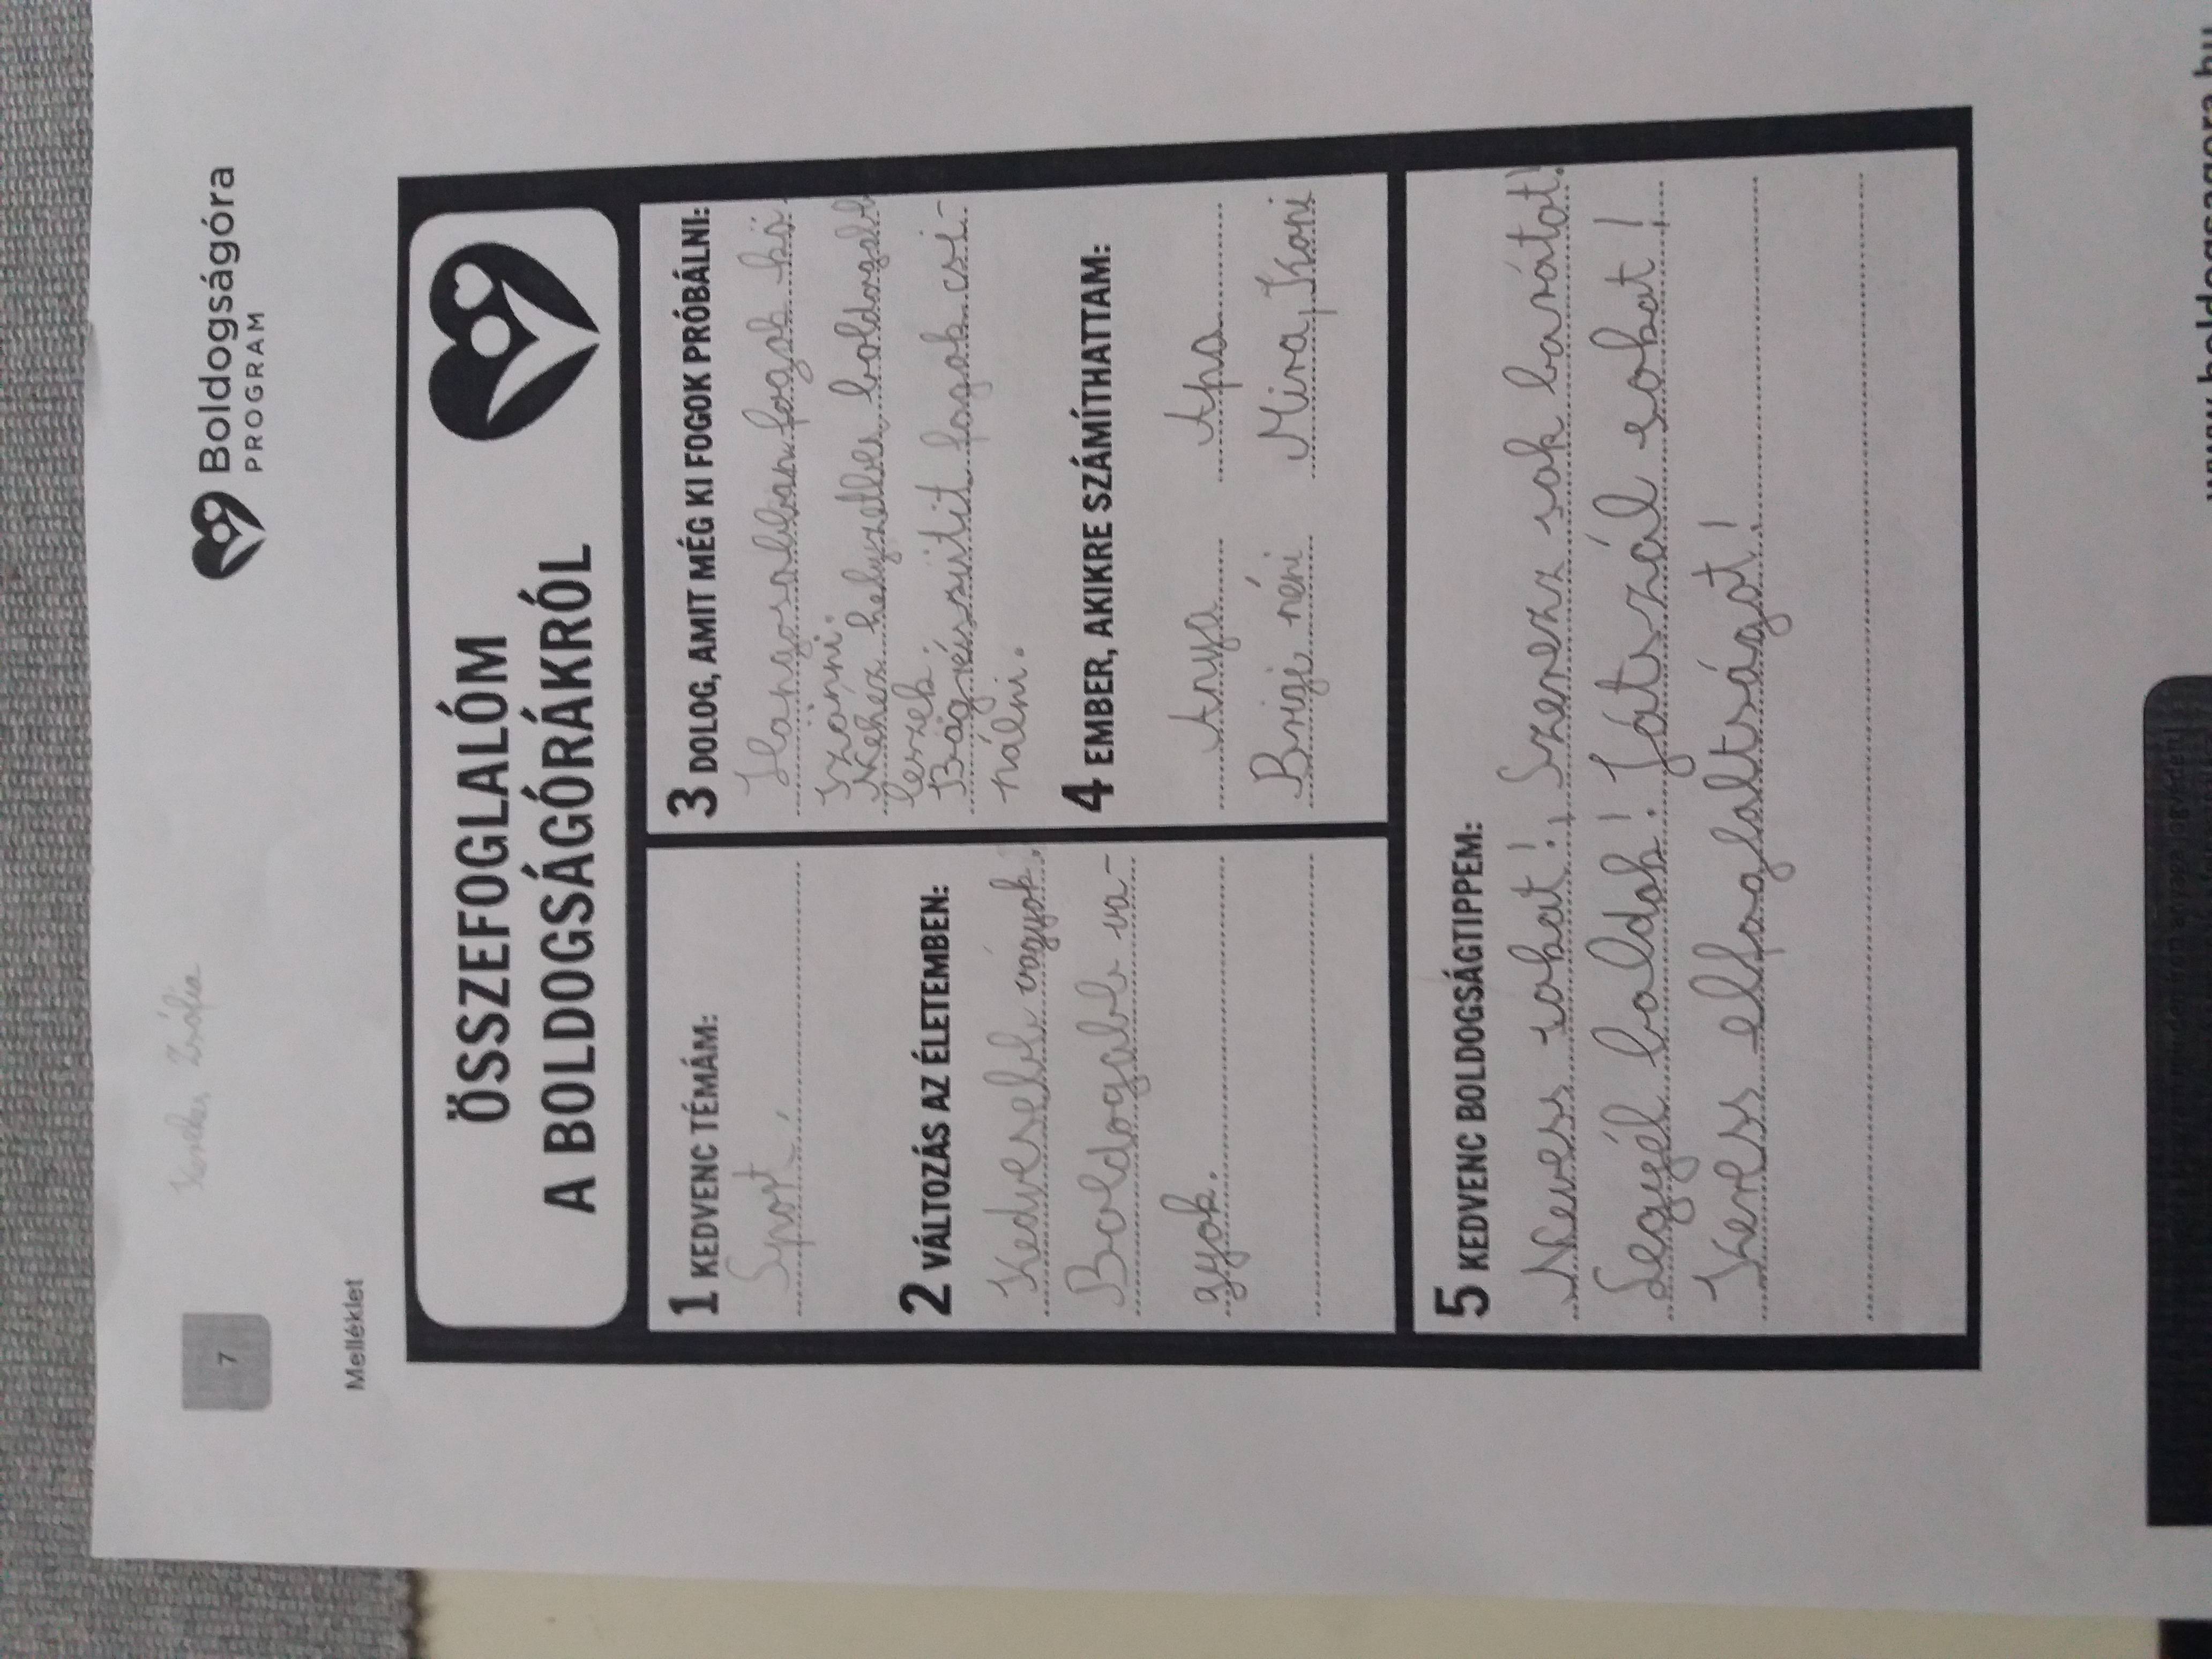 7
Zsófia
Boldogságóra
PROGRAM
Melléklet
ÖSSZEFOGLALÓM
A BOLDOGSÁGÓRÁKRÓL
1 KEDVENC TÉMÁM:
Sport,
2 VÁLTOZÁS AZ ÉLETEMBEN:
Kedvesebb vagyok.
Boldogabb va-
gyok.
3 DOLOG, AMIT MÉG KI FOGOK PRÓBÁLNI:
Hangosabban fogok kö
szönni.
Nehéz helyzetben boldogabb
leszek.
Boldog süti fogok csi-
nálni.
4 EMBER, AKIKRE SZÁMÍTHATTAM:
Anya Apa
Brigi néni Mira, Koni
5 KEDVENC BOLDOGSÁGTIPPEM:
Nevess sokat! Szerezz sok barátot!
Legyél boldok! Játszál sokat!
Keress elfoglaltságot!
www.boldogsagora.hu